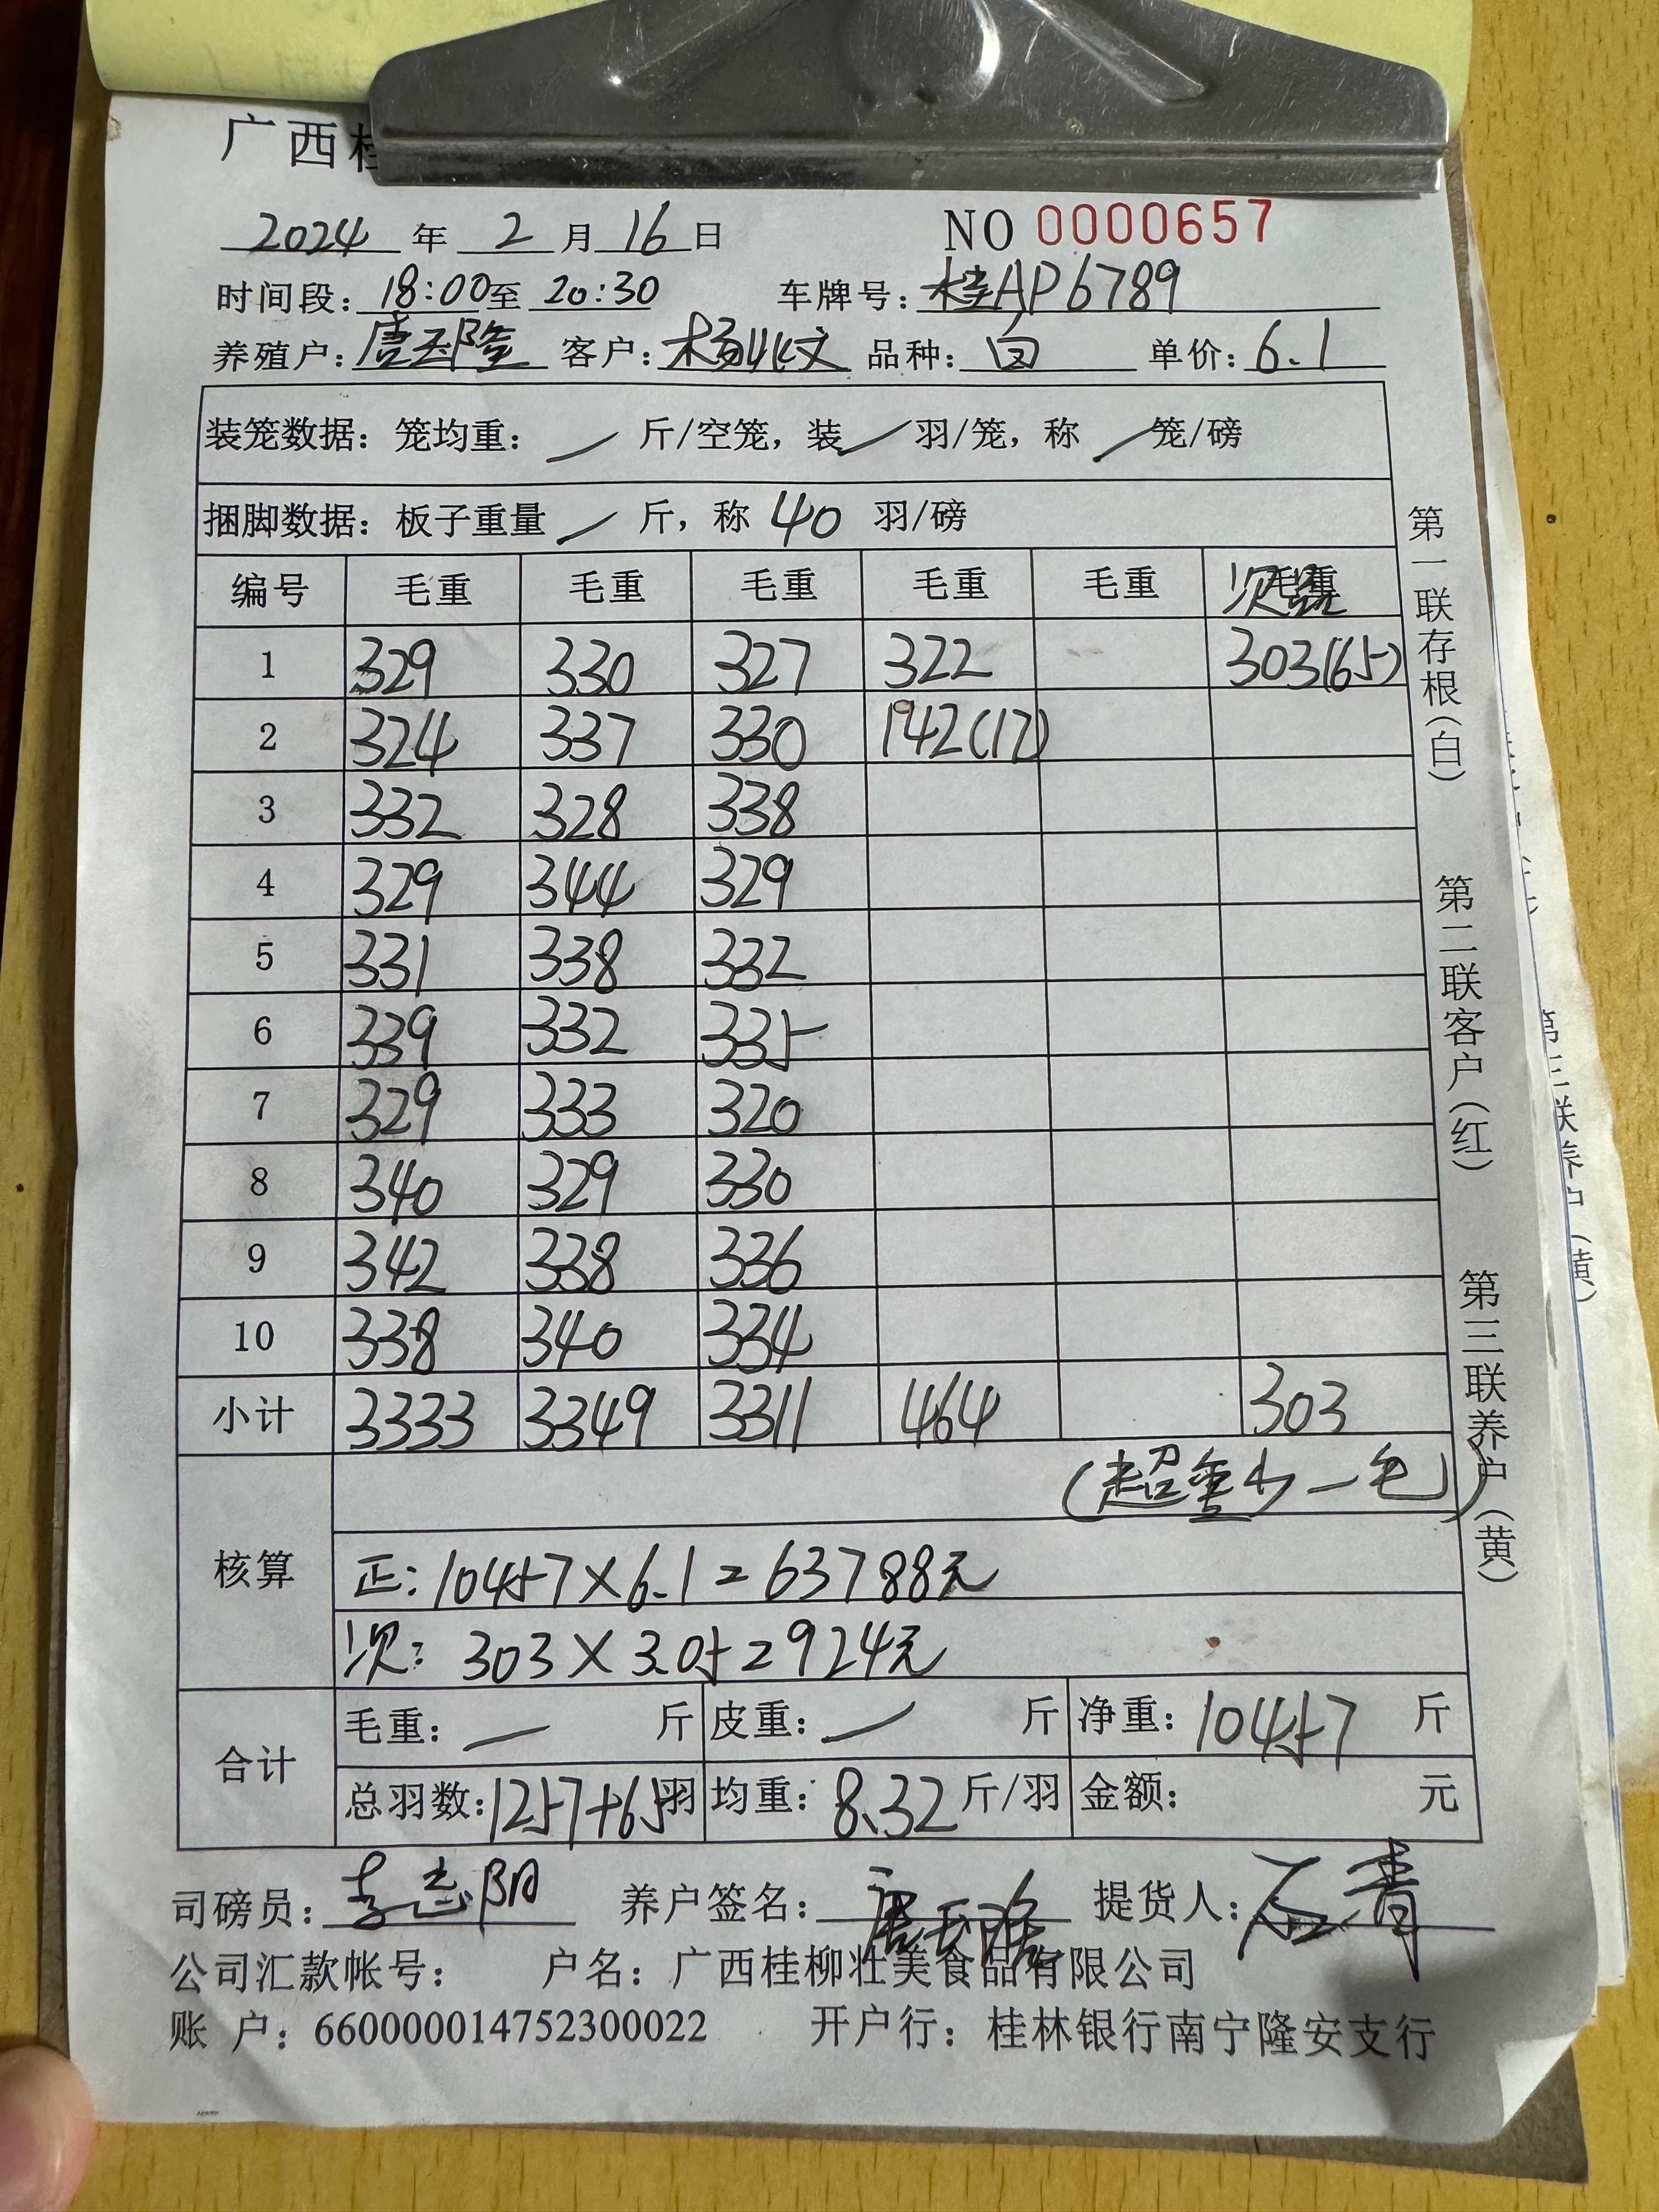 广西桂
2024 年 2 月 16 日 NO 0000657
时间段: 18:00 至 20:30 车牌号: 桂AP6789
养殖户: 唐玉隆 客户: 杨兆文 品种: 白 单价: 6.1
装笼数据: 笼均重: / 斤/空笼, 装 / 羽/笼, 称 / 笼/磅
捆脚数据: 板子重量 / 斤, 称 40 羽/磅
编号 毛重 毛重 毛重 毛重 毛重 毛重
1 329 330 327 322 303(65)
2 324 337 330 142(17)
3 332 328 338
4 329 344 329
5 331 338 332
6 339 332 335
7 329 333 320
8 340 329 330
9 342 338 336
10 338 340 334
小计 3333 3349 3311 464 303
(超重少一毛)
核算
正: 10457×6.1=63788元
次: 303×3.05=924元
合计
毛重: / 斤 皮重: / 斤 净重: 10457 斤
总羽数: 1257+65羽 均重: 8.32 斤/羽 金额: 元
司磅员: 李志阳 养户签名: 唐玉隆 提货人: 石青
公司汇款帐号: 户名: 广西桂柳壮美食品有限公司
账 户: 660000014752300022 开户行: 桂林银行南宁隆安支行
第一联存根(白) 第二联客户(红) 第三联养户(黄)
第三联养户(黄)